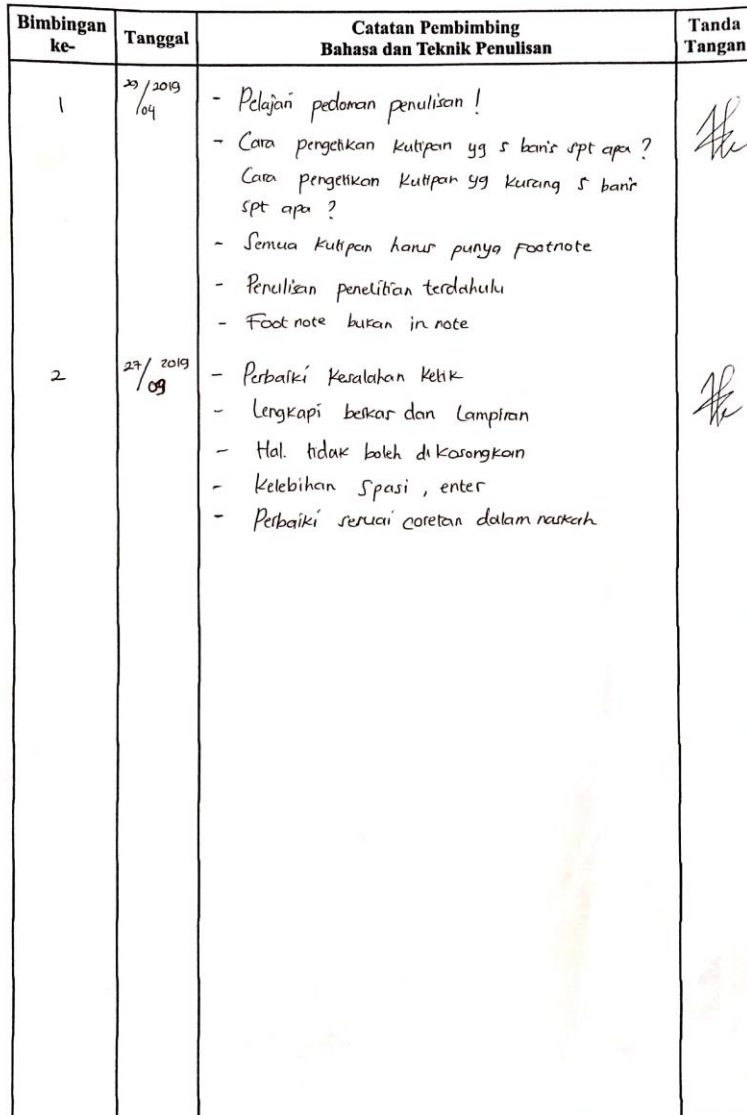 Bimbingan ke-
Tanggal
Catatan Pembimbing
Bahasa dan Teknik Penulisan
Tanda Tangan
1
29/04 2019
- Pelajari pedoman penulisan !
- Cara pengetikan kutipan yg 5 baris spt apa ?
Cara pengetikan kutipan yg kurang 5 baris
spt apa ?
- Semua kutipan harus punya Footnote
- Penulisan penelitian terdahulu
- Foot note bukan in note
2
27/09 2019
- Perbaiki kesalahan ketik
- Lengkapi berkas dan Lampiran
- Hal. tidak boleh dikosongkan
- Kelebihan Spasi , enter
- Perbaiki sesuai coretan dalam naskah